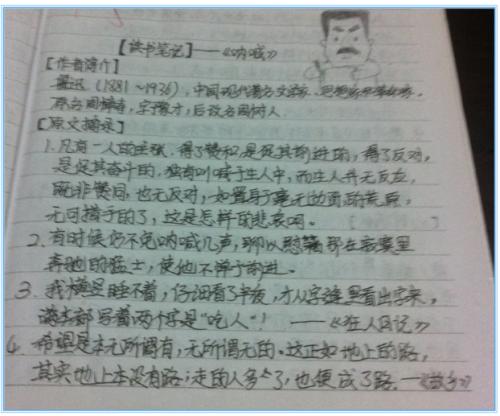 【读书笔记】——《呐喊》
【作者简介】
鲁迅(1881~1936),中国现代著名文学家、思想家和革命家,
原名周樟寿,字豫才,后改名周树人
【原文摘录】
1.凡有一人的主张,得了赞和,是促其前进的,得了反对,
是促其奋斗的,独有叫喊于生人中,而生人并无反应,
既非赞同,也无反对,如置身于毫无边际的荒原,
无可措手的了,这是怎样的悲哀呵。
2.有时候仍不免呐喊几声,聊以慰藉那在寂寞里
奔驰的猛士,使他不惮于前进。
3.我横竖睡不着,仔细看了半夜,才从字缝里看出字来,
满本都写着两个字是“吃人”! ——《狂人日记》
4.希望是本无所谓有,无所谓无的.这正如地上的路,
其实地上本没有路;走的人多了,也便成了路.—《故乡》